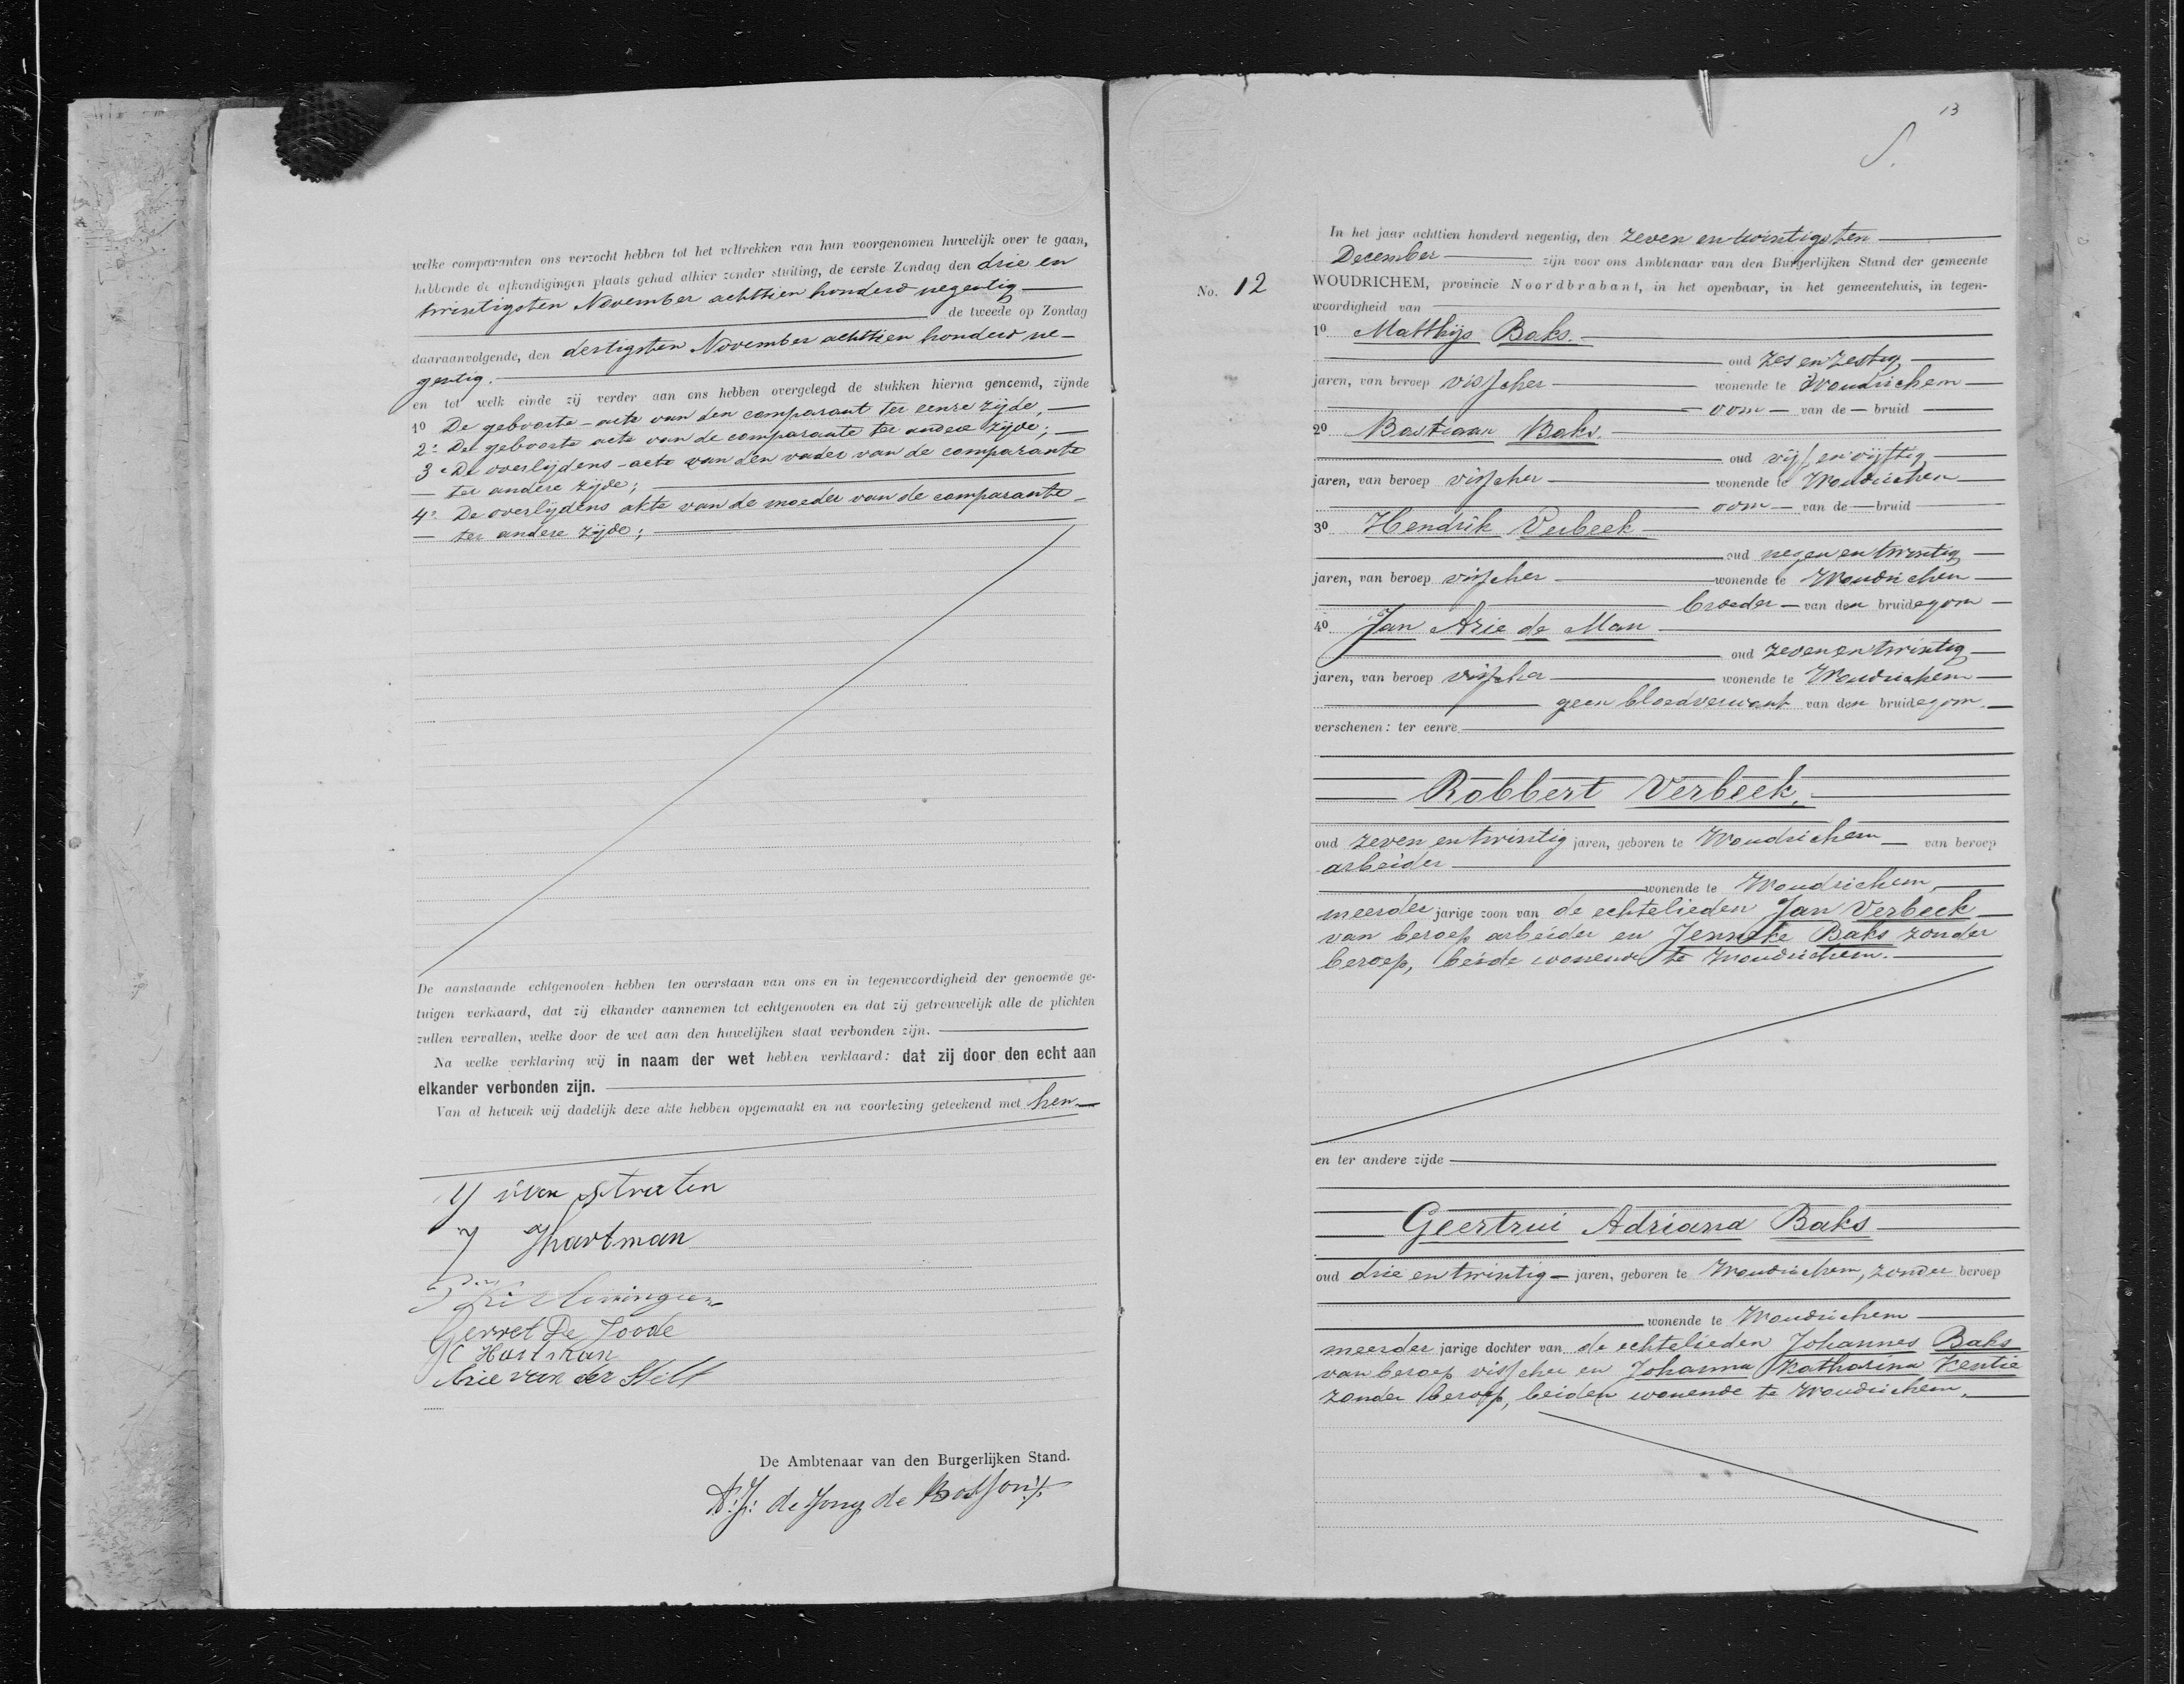 welke comparanten ons verzocht hebben tot het voltrekken van hun voorgenomen huwelijk over te gaan,
hebbende de afkondigingen plaats gehad alhier zonder stuiting, de eerste Zondag den drie en
twintigsten November achttien honderd negentig
de tweede op Zondag
daaraanvolgende, den dertigsten November achttien honderd ne-
gentig.
en tot welk einde zij verder aan ons hebben overgelegd de stukken hierna genoemd, zijnde
1o De geboorte-acte van den comparant ter eenre zijde,
2o De geboorte acte van de comparante ter andere zijde;
3o De overlijdens-acte van den vader van de comparante
ter andere zijde;
4o De overlijdens akte van de moeder van de comparante
ter andere zijde;
De aanstaande echtgenooten hebben ten overstaan van ons en in tegenwoordigheid der genoemde ge-
tuigen verklaard, dat zij elkander aannemen tot echtgenooten en dat zij getrouwelijk alle de plichten
zullen vervullen, welke door de wet aan den huwelijken staat verbonden zijn.
Na welke verklaring wij in naam der wet hebben verklaard: dat zij door den echt aan
elkander verbonden zijn.
Van al hetwelk wij dadelijk deze akte hebben opgemaakt en na voorlezing geteekend met hen
van Straten
Hartman
Gerret De Joode
Hartman
Arie van der Stelt
De Ambtenaar van den Burgerlijken Stand.
de Jong de
13
No. 12
In het jaar achttien honderd negentig, den zeven en twintigsten
December zijn voor ons Ambtenaar van den Burgerlijken Stand der gemeente
WOUDRICHEM, provincie Noordbrabant, in het openbaar, in het gemeentehuis, in tegen-
woordigheid van
1o Matthijs Baks.
oud zes en zestig
jaren, van beroep visscher wonende te Woudrichem
oom van de bruid
2o Bastiaan Baks.
oud vijf en vijftig
jaren, van beroep visscher wonende te Woudrichem
oom van de bruid
3o Hendrik Verbeek
oud negen en twintig
jaren, van beroep visscher wonende te Woudrichem
broeder van den bruidegom
4o Jan Arie de Man
oud zeven en twintig
jaren, van beroep visscher wonende te Woudrichem
geen bloedverwant van den bruidegom.
verschenen: ter eenre
Robbert Verbeek,
oud zeven en twintig jaren, geboren te Woudrichem van beroep
arbeider
wonende te Woudrichem,
meerder jarige zoon van de echtelieden Jan Verbeek
van beroep arbeider en Jenneke Baks zonder
beroep, beide wonende te Woudrichem.
en ter andere zijde
Geertrui Adriana Baks
oud drie en twintig jaren, geboren te Woudrichem, zonder beroep
wonende te Woudrichem
meerder jarige dochter van de echtelieden Johannes Baks
van beroep visscher en Johanna Katharina Kentie
zonder beroep, beiden wonende te Woudrichem.